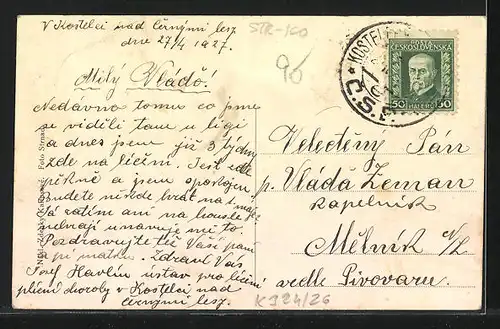 V Kostelci nad Černými lesy
dne 27/4 1927.
STR-160
96
Milý Vláďo!
Nedávno tomu co jsme
se viděli tam u ligi
a dnes jsem již 3 týdny
zde na léčení. Jest zde
pěkně a jsem spokojen
budete někde hrát na
Já zatím ani na housle
nehraji unavuje mě to.
Pozdravujte též Vaší paní
a pí matku. Zdraví Vás
Josef Havlín ústav pro léčení
plicní choroby v Kostelci nad
černými lesy.
KOSTELEC
Č.S.
POŠTA
ČESKOSLOVENSKÁ
50 HALÉŘŮ 50
Velectěný Pán
p. Vláďa Zeman
kapelník
Mělník n/L
vedle Pivovaru.
K924/26
Foto Strnad